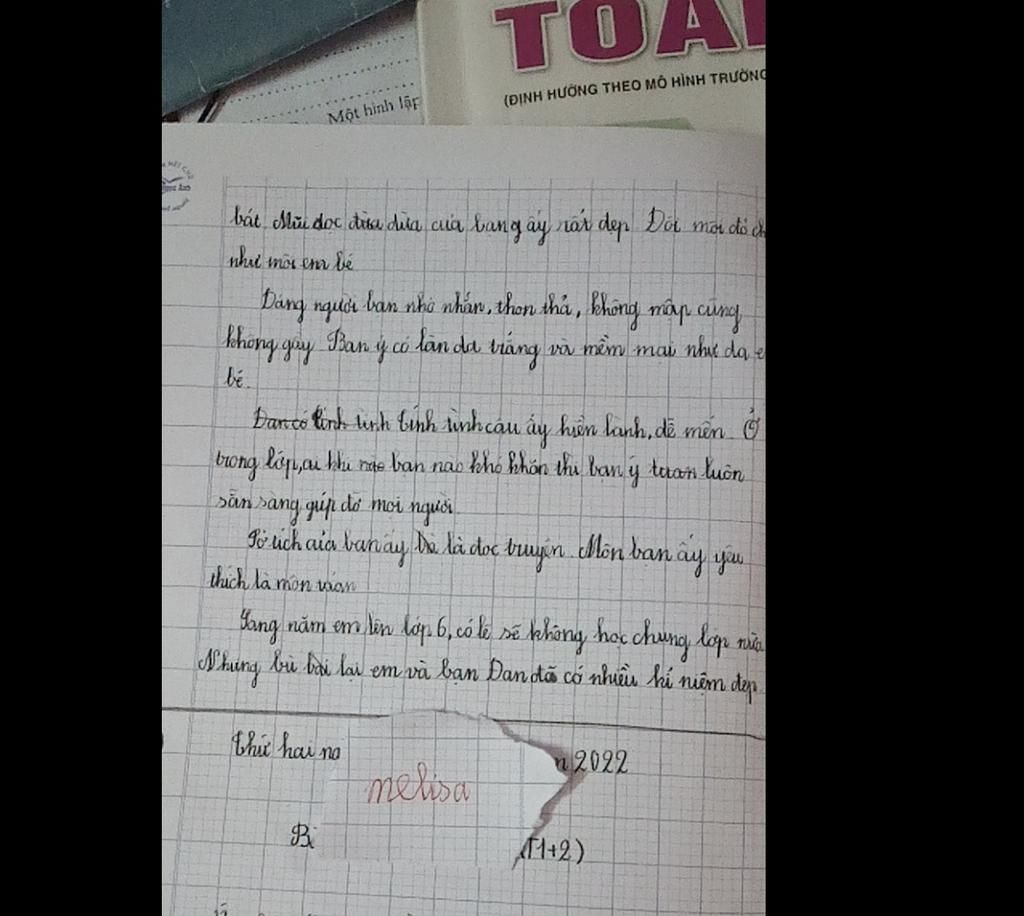 TOÁ
(ĐỊNH HƯỚNG THEO MÔ HÌNH TRƯỜNG
Một hình lập
bát. Mũi dọc dừa dừa của bạn ấy rất đẹp Đôi môi đỏ
như môi em bé
Dáng người bạn nhỏ nhắn, thon thả, không mập cũng
không gầy Bạn ý có làn da trắng và mềm mại như da e
bé.
Đan có tính tính tình cậu ấy hiền lành, dễ mến. Ở
trong lớp, ai khi nào bạn nào khó khăn thì bạn ý luôn
sẵn sàng giúp đỡ mọi người.
Sở thích của bạn ấy là là đọc truyện. Môn bạn ấy yêu
thích là môn
Sang năm em lên lớp 6, có lẽ sẽ không học chung lớp nữa
Nhưng bù lại em và bạn Đan đã có nhiều kỉ niệm đẹp
Thứ hai n 2022
melisa
B (T1+2)